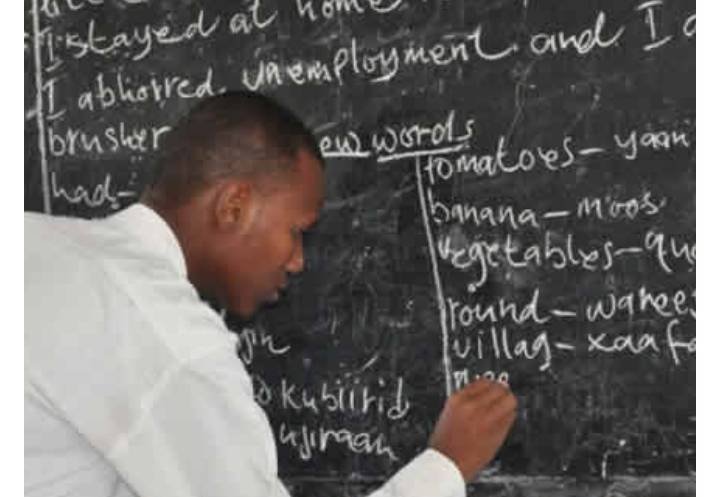 I stayed at home
I abhorred unemployment and I
brusher
ew words
had-
tomatoes- yaan
banana- moos
vegetables-qu
round- waree
villag- xaafa
kubiirid
ujiraan